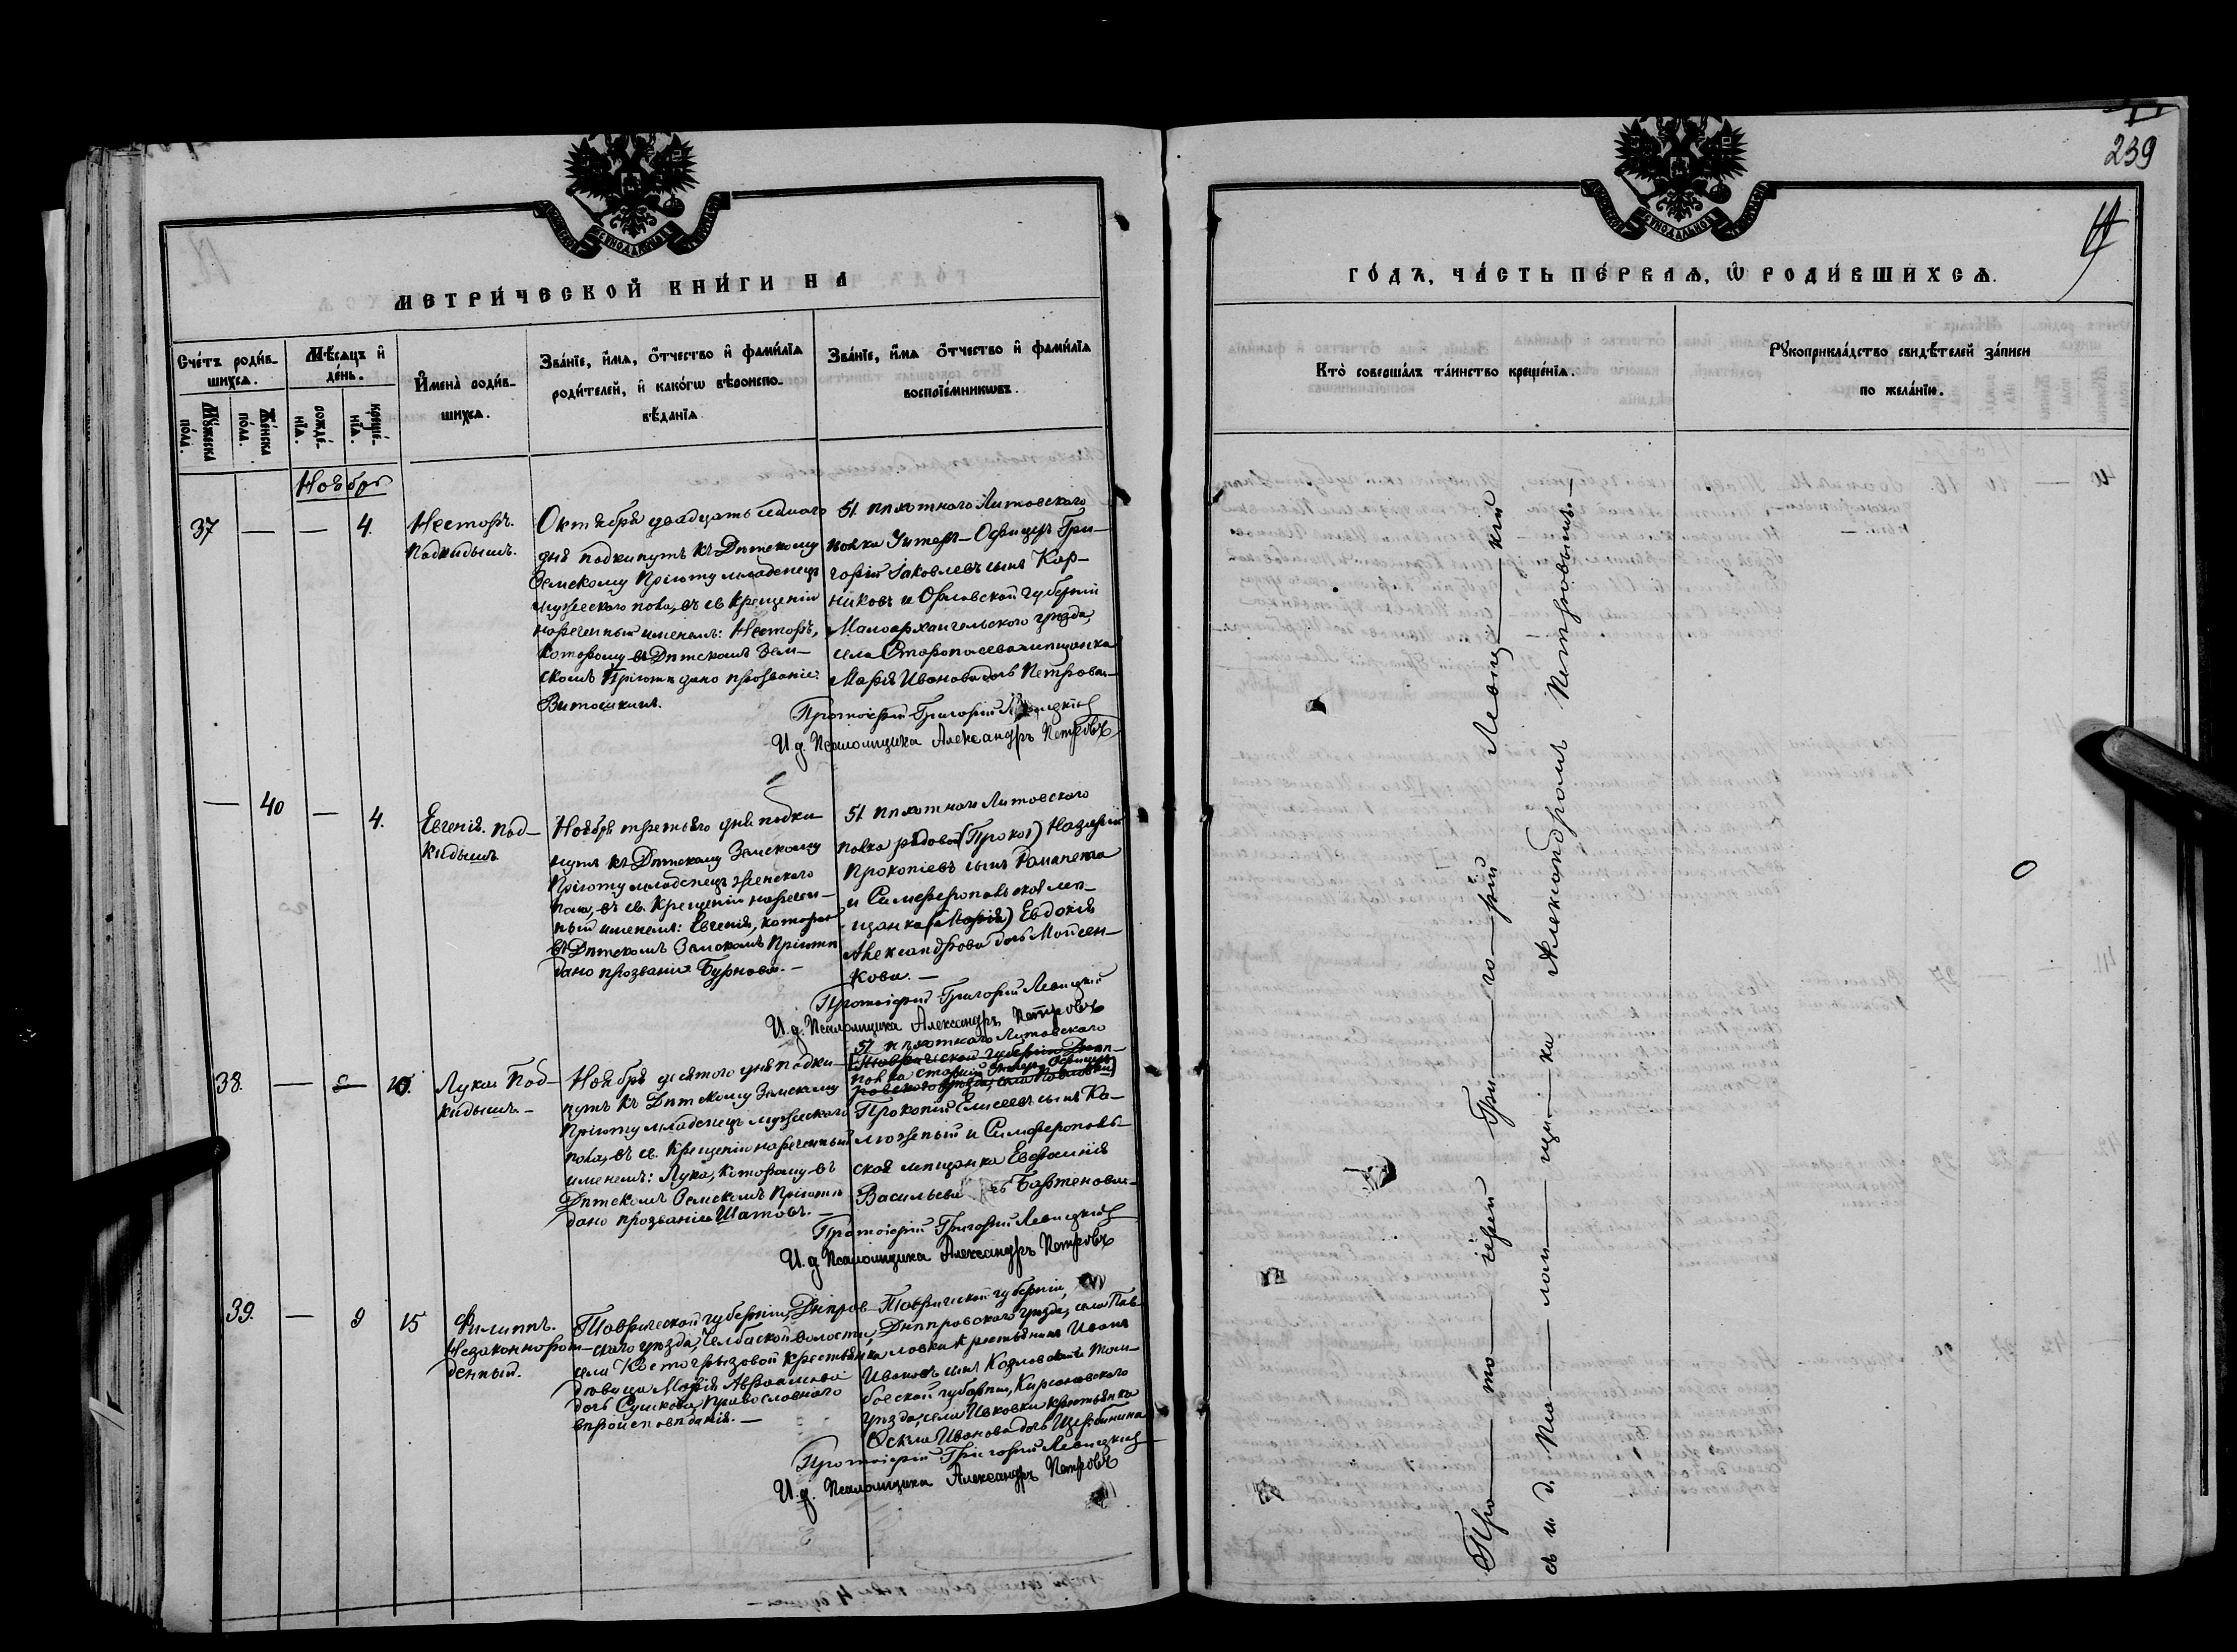 239
МЕТРИ́ЧЕСКОЙ КНИ́ГИ НА
ГО́ДЪ, ЧА́СТЬ ПЕ́РВАѦ, Ѿ РОДИ́ВШИХСѦ.
Сче́тъ роди́в-
шихсѧ.
Мѣ́сѧцъ и҆
де́нь.
И҆мена̀ роди́в-
шихсѧ.
Зва́нїе, и҆́мѧ, ѻ҆́тчество и҆ фами́лїѧ
роди́телей, и҆ како́гѡ вѣроиспо-
вѣ́данїѧ.
Зва́нїе, и҆́мѧ ѻ҆́тчество и҆ фами́лїѧ
воспрїе́мникѡвъ.
Кто̀ соверша́лъ та́инство креще́нїѧ.
Рꙋкоприкла́дство свидѣ́телей за́писи
по жела́нїю.
Мꙋ́жеска
по́ла.
Же́нска
по́ла.
рожде́-
нїѧ.
креще́-
нїѧ.
Ноябрь
37 — — 4.
Несторъ.
Подкидышъ.
Октября двадцать седмаго
дня подкинутъ къ Дѣтскому
Земскому Пріюту младенецъ
мужескаго пола, въ св. Крещеніи
нареченный именемъ: Несторъ,
которому въ Дѣтскомъ Зем-
скомъ Пріютѣ дано прозваніе:
Витошкинъ.
51. пѣхотнаго Литовскаго
полка Унтеръ-Офицеръ Гри-
горій Іаковлевъ сынъ Кор-
никовъ и Орловской губерніи
Малоархангельскаго уѣзда,
села мѣщанка
Марія Иванова дочь Петрова.—
Протоіерей Григорій Левицкій
И. д. Псаломщика Александръ Петровъ
— 40 — 4.
Евгенія. Под-
кидышъ
Ноября третьяго дня подки-
нутъ къ Дѣтскому Земскому
Пріюту младенецъ женскаго
пола, въ св. Крещеніи наречен-
ный именемъ: Евгенія, которой
въ Дѣтскомъ Земскомъ Пріютѣ
дано прозваніе Бурнова.—
51 пѣхотнаго Литовскаго
полка рядовой (Прокоп) Назарій
Прокопіевъ сынъ Романета
и Симферопольская мѣ-
щанка (Марія) Евдокія
Александрова дочь Мойсен-
кова.—
Протоіерей Григорій Левицкій
И. д. Псаломщика Александръ Петровъ
38. — 10.
Лука. Под-
кидышъ.—
Ноября десятого дня подки-
нутъ къ Дѣтскому Земскому
Пріюту младенецъ мужескаго
пола, въ св. Крещеніи нареченный
именемъ: Лука, которому въ
Дѣтскомъ Земскомъ Пріютѣ
дано прозваніе Шатовъ.—
51 пѣхотнаго Литовскаго
(Таврической губерніи Днѣп-
полка старшій Унтеръ Офицеръ
ровскаго уѣзда, села Павловки)
Прокопій Елисеевъ сынъ Ка-
люжный и Симферополь-
ская мѣщанка Евфимія
Васильева дочь Бартенова.—
Протоіерей Григорій Левицкій
И. д. Псаломщика Александръ Петровъ
39. — 9 15
Филиппъ.
Незаконнорож-
денный.
Таврической губерніи, Днѣпров-
скаго уѣзда, Челбаской волости,
села Костогрызовой крестьянка
дѣвица Марія Авраамова
дочь Сушкова, Православнаго
вѣроисповѣданія.—
Таврической губерніи,
Днѣпровскаго уѣзда, села Пав-
ловки крестьянинъ Иванъ
Ивановъ сынъ Козловъ и Там-
бовской губерніи, Кирсановскаго
уѣзда, села Ивковки крестьянка
Ѳекла Иванова дочь Щербинина
Протоіерей Григорій Левицкій
И. д. Псаломщика Александръ Петровъ
Про— то— іерей Гри— го— рій Левиц— кій
съ и. д. Пса— лом— щи— ка Александромъ Петровымъ.—